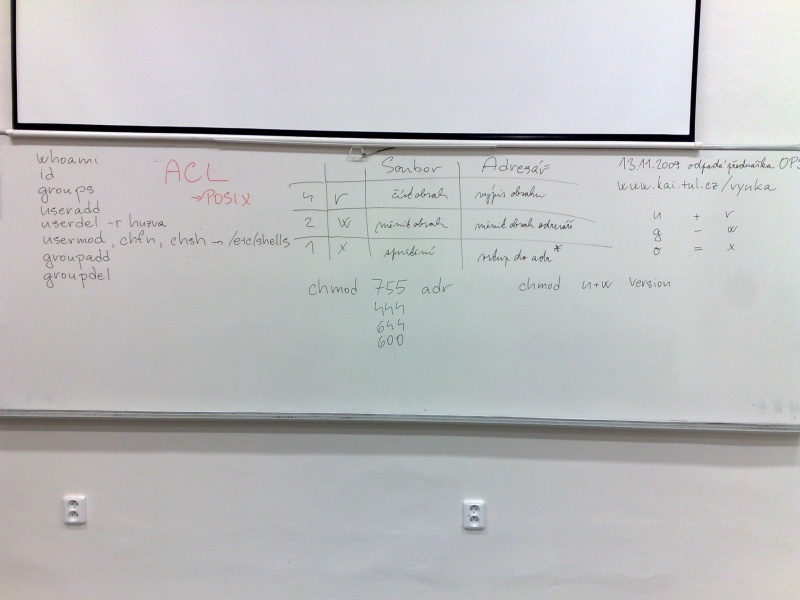 whoami
id
groups
useradd
userdel -r husva
usermod, chfn, chsh → /etc/shells
groupadd
groupdel
ACL
→POSIX
Soubor Adresář
4 r číst obsah výpis obsahu
2 w měnit obsah měnit obsah adresáře
1 x spuštění vstup do adr*
chmod 755 adr
444
644
600
chmod u+w version
13.11.2009 odpadá přednáška OPS
www.kai.tul.cz/vyuka
u + r
g - w
o = x